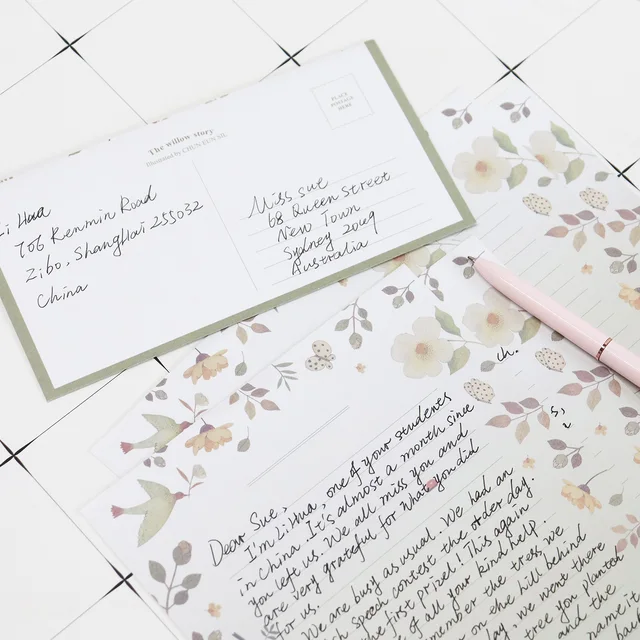 The willow story
Illustrated by
PLACE
POSTAGE
HERE
Li Hua
706 Renmin Road
Zibo, ShangHai 255032
China
Miss Sue
68 Queen Street
New Town
Sydney 2049
Australia
ch.
s,
Dear Sue,
I'm Li Hua, one of your students
in China. It's almost a month since
you left us. We all miss you and
are very grateful for what you did
for us.
We are busy as usual. We had an
speech contest the other day.
the first prize! This again
of all your kind help.
the tress, we
on the hill behind
day, we went there
tree you planted
and the
name